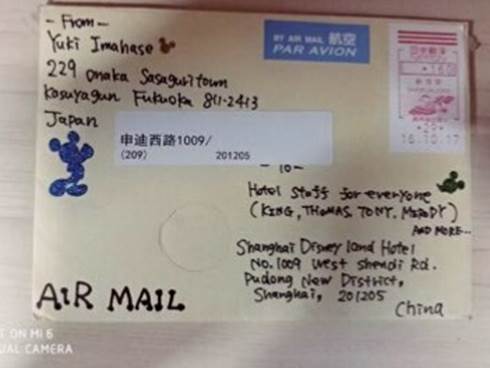 - From -
Yuki Imahase
229 onaka Sasaguritown
Kasuyagun Fukuoka 811-2413
Japan
BY AIR MAIL 航空
PAR AVION
日本郵便
16.10.17
申迪西路1009/
(209) 201205
- To -
Hotel Staff for everyone
(KING, THOMAS, TONY, MELODY)
AND MORE...
Shanghai Disney land Hotel
No.1009 West Shendi Rd.
Pudong New District,
Shanghai, 201205
China
AIR MAIL
ON MI 6
DUAL CAMERA